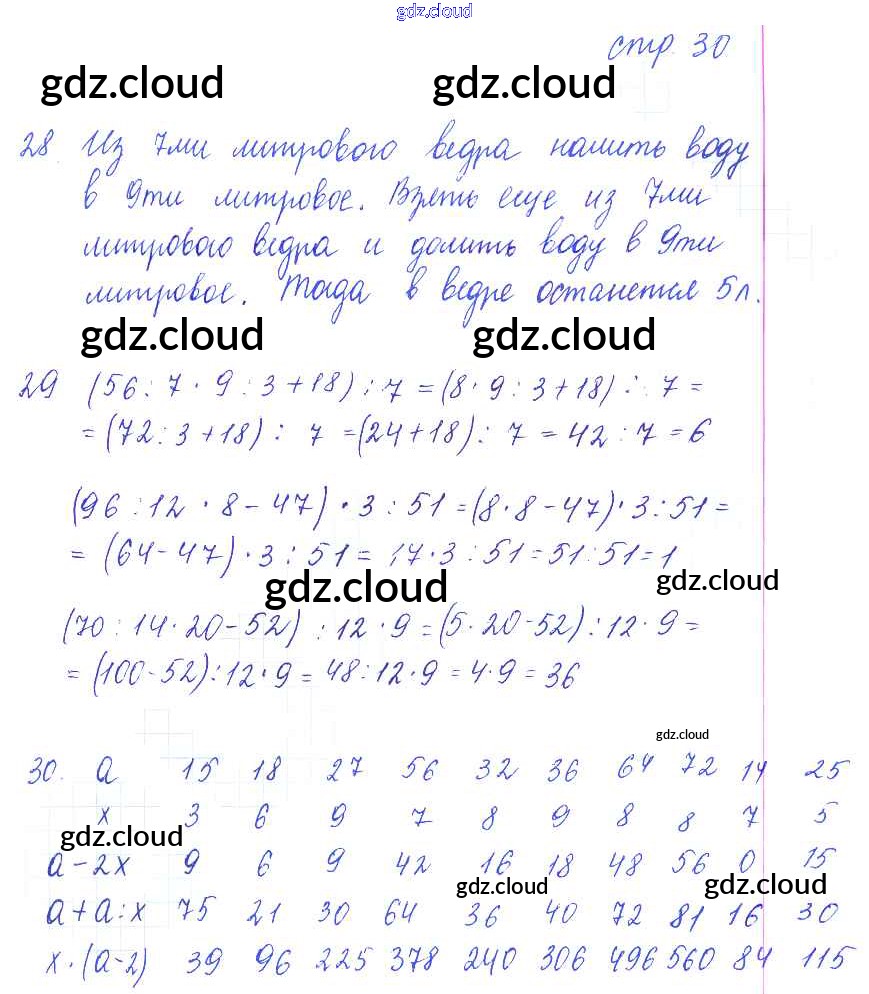 gdz.cloud
стр. 30
gdz.cloud gdz.cloud
28 Из 7ми литрового ведра налить воду
в 9ти литровое. Взять еще из 7ми
литрового ведра и долить воду в 9ти
литровое. Тогда в ведре останется 5л.
gdz.cloud gdz.cloud
29 (56:7·9:3+18):7=(8·9:3+18):7=
=(72:3+18):7=(24+18):7=42:7=6
(96:12·8-47)·3:51=(8·8-47)·3:51=
=(64-47)·3:51=17·3:51=51:51=1
gdz.cloud gdz.cloud
(70:14·20-52):12·9=(5·20-52):12·9=
=(100-52):12·9=48:12·9=4·9=36
gdz.cloud
30. a 15 18 27 56 32 36 64 72 14 25
x 3 6 9 7 8 9 8 8 7 5
gdz.cloud
a-2x 9 6 9 42 16 18 48 56 0 15
gdz.cloud gdz.cloud
a+a:x 75 21 30 64 36 40 72 81 16 30
x·(a-2) 39 96 225 378 240 306 496 560 84 115